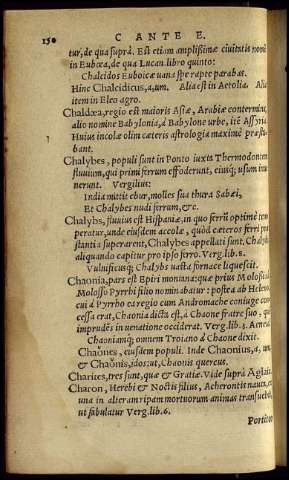 150 C ANTE E.
tur, de qua suprà. Est etiam amplissimæ ciuitatis nomē
in Eubœa, de qua Lucan. libro quinto:
Chalcidos Euboicæ uana spe rapte parabas.
Hinc Chalcidicus, a, um. Alia est in Aetolia. Alia
item in Eleo agro.
Chaldæa, regio est maioris Asiæ, Arabiæ contermina,
alio nomine Babylonia, à Babylone urbe, itē Assyria.
Huius incolæ olim cæteris astrologia maximè præsta
bant.
Chalybes, populi sunt in Ponto iuxta Thermodontem
fluuium, qui primi ferrum effoderunt, eiusq; usum
nerunt. Vergilius:
India mittit ebur, molles sua thura Sabæi,
Et Chalybes nudi ferrum, &c.
Chalybs, fluuius est Hispaniæ, in quo ferrū optimè tem
peratur, unde eiusdem accolæ, quòd cæteros ferri præ
stantia superarent, Chalybes appellati sunt. Chalybs
aliquando capitur pro ipso ferro. Verg. lib. 8.
Vulnificusq; Chalybs uasta fornace liquescit.
Chaonia, pars est Epiri montana: quæ prius Molosia à
Molosso Pyrrhi filio nominabatur: postea ab Heleno,
cui à Pyrrho ea regio cum Andromache coniuge con
cessa erat, Chaonia dicta est, à Chaone fratre suo, quē
imprudēs in uenatione occiderat. Verg. lib. 3. Aeneid.
Chaoniamq; omnem Troiano à Chaone dixit.
Chaônes, eiusdem populi. Inde Chaonius, a, um,
& Chaônis, idos: ut, Chaonis quercus.
Charites, tres sunt, quæ & Gratiæ. Vide suprà Aglaia.
Charon, Herebi & Noctis filius, Acherontis nauta,
una in alteram ripam mortuorum animas transuehit,
ut fabulatur Verg. lib. 6.
Portitor